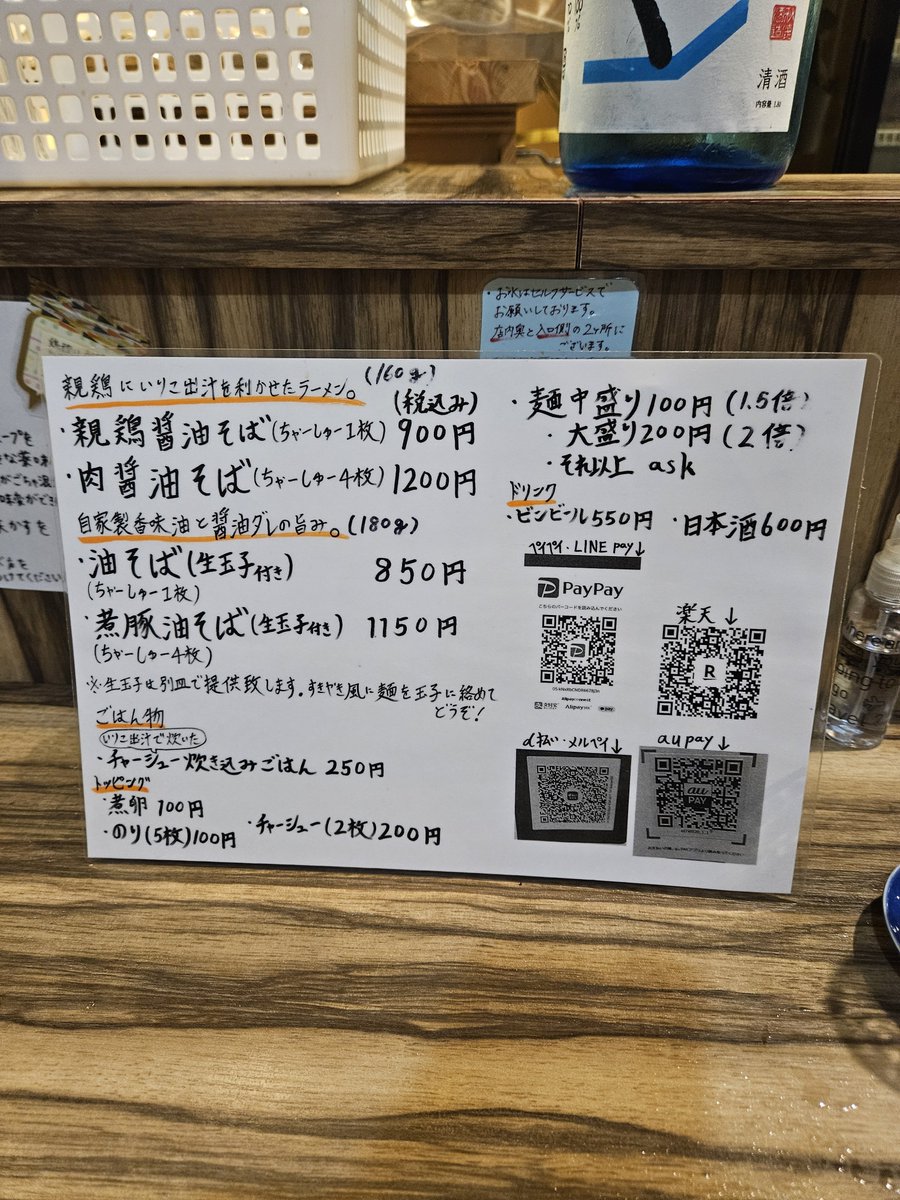 清酒
・お水はセルフサービスで
お願いしております。
店内奥と入口側の2ヶ所に
ございます。
親鶏にいりこ出汁を利かせたラーメン。(160g)
(税込み)
・親鶏醤油そば(ちゃーしゅー1枚) 900円
・肉醤油そば(ちゃーしゅー4枚) 1200円
自家製香味油と醤油ダレの旨み。(180g)
・油そば(生玉子付き) 850円
(ちゃーしゅー1枚)
・煮豚油そば(生玉子付き) 1150円
(ちゃーしゅー4枚)
※生玉子は別皿で提供致します。すきやき風に麺を玉子に絡めて
どうぞ!
ごはん物
いりこ出汁で炊いた
・チャーシュー炊き込みごはん 250円
トッピング
・煮卵 100円
・のり(5枚)100円 ・チャーシュー(2枚)200円
・麺中盛り100円(1.5倍)
・大盛り200円(2倍)
・それ以上 ask
ドリンク
・ビンビール550円 ・日本酒600円
ペイペイ・LINE pay↓
PayPay
こちらのバーコードを読み込んでください
楽天↓
R
d払い・メルペイ↓
au pay↓
au
PAY